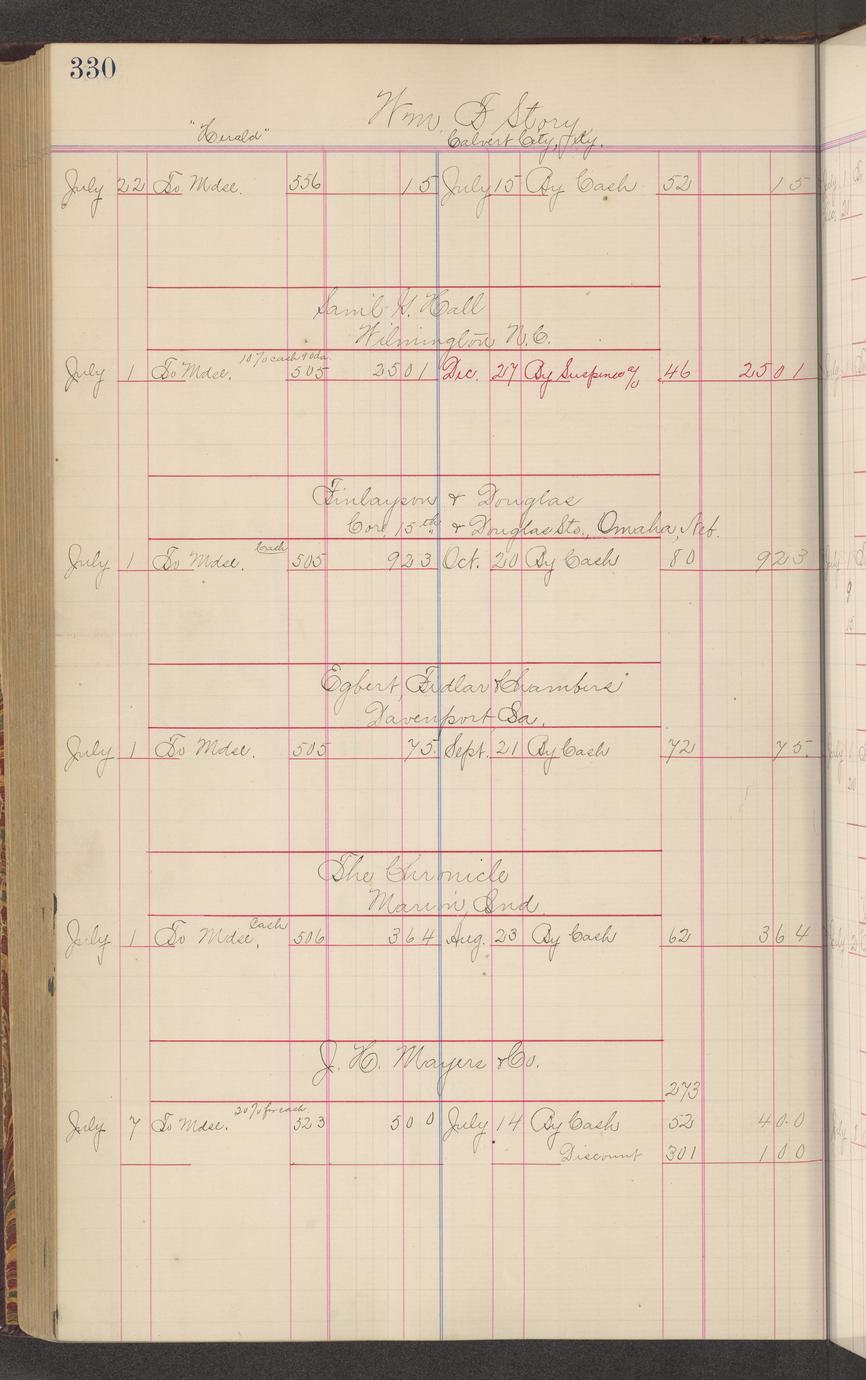 330
Wm. F Story
"Herald" Calvert City, Ky.
July 22 To Mdse. 556 15 July 15 By Cash 52 15
Saml. H. Hall
Wilmington N.C.
10% cash 90da.
July 1 To Mdse. 505 2501 Dec. 27 By Suspense a/c 46 2501
Finlayson & Douglas
Cor. 15th & Douglas Sts., Omaha, Neb.
Cash
July 1 To Mdse. 505 923 Oct. 20 By Cash 80 923
Egbert, Fidlar & Chambers
Davenport Ia.
July 1 To Mdse. 505 75 Sept. 21 By Cash 72 75.
The Chronicle
Marion, Ind
Cash
July 1 To Mdse, 506 364 Aug. 23 By Cash 62 364
J. H. Mayers & Co.
273
20% for cash
July 7 To Mdse. 523 500 July 14 By Cash 52 400
Discount 301 100